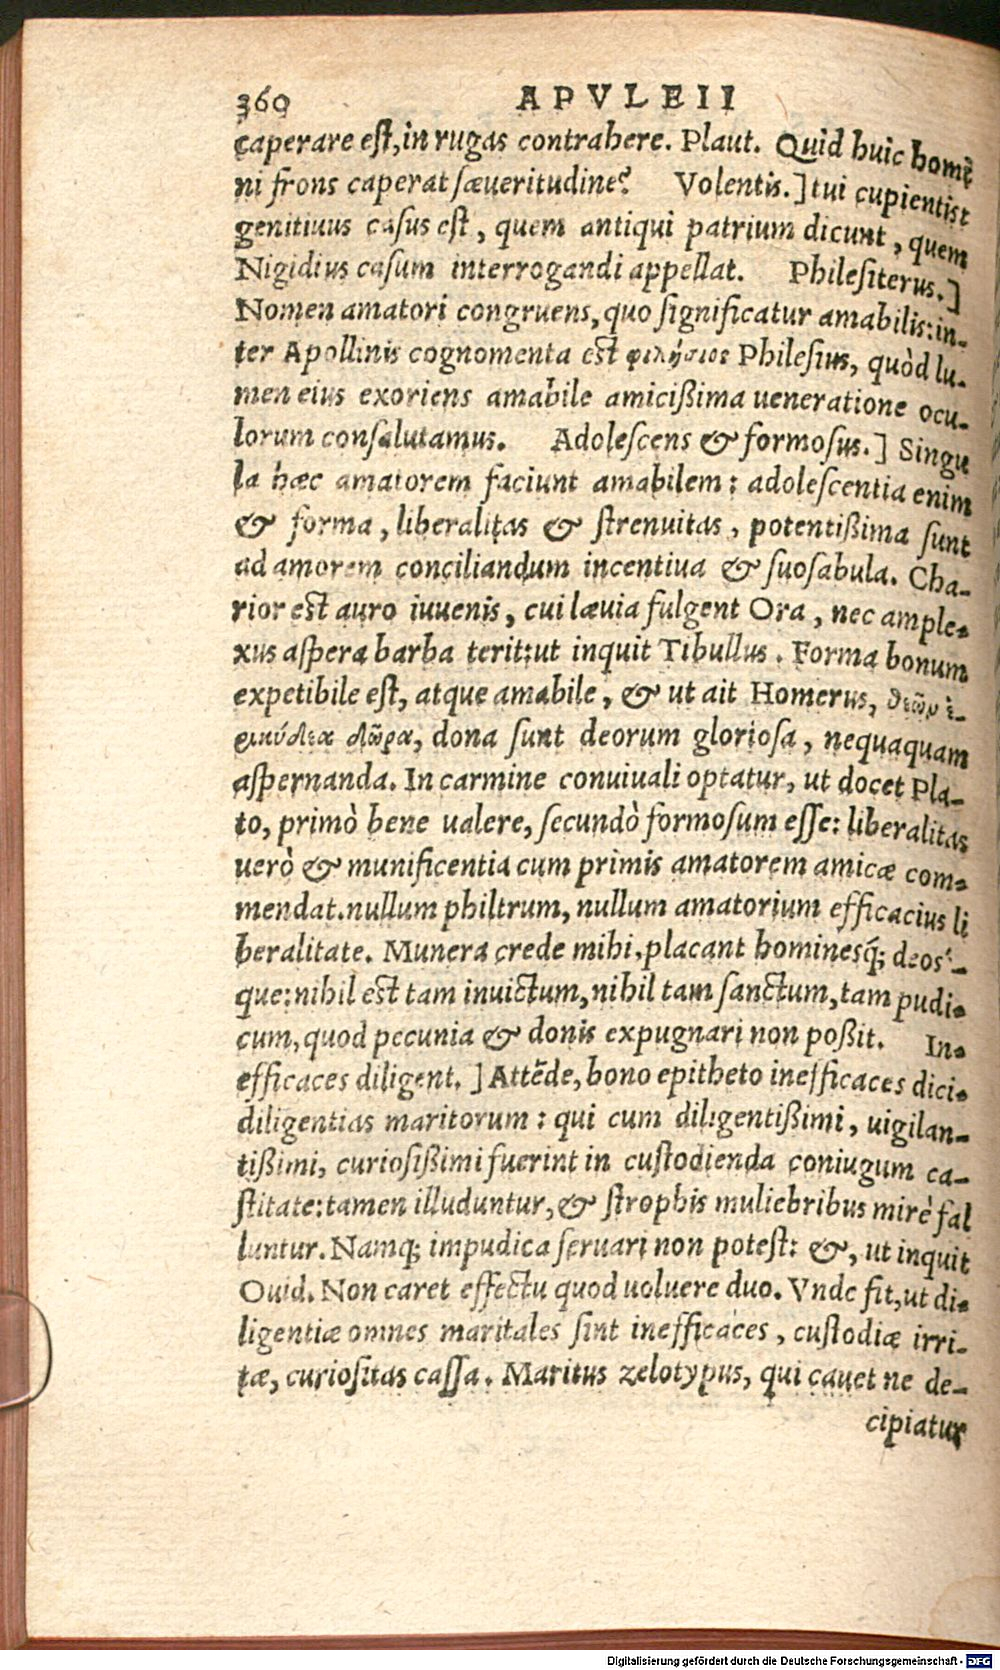 360 APVLEII
caperare est, in rugas contrahere. Plaut. Quid huic homĩ
ni frons caperat sæueritudine? Volentis.] tui cupientis:
genitiuus casus est, quem antiqui patrium dicunt, quem
Nigidius casum interrogandi appellat. Philesiterus.]
Nomen amatori congruens, quo significatur amabilis: in-
ter Apollinis cognomenta est φιλήσιος Philesius, quòd lu-
men eius exoriens amabile amicißima ueneratione ocu-
lorum consalutamus. Adolescens & formosus.] Singu
la hæc amatorem faciunt amabilem: adolescentia enim
& forma, liberalitas & strenuitas, potentißima sunt
ad amorem conciliandum incentiua & suosabula. Cha-
rior est auro iuuenis, cui læuia fulgent Ora, nec ample-
xus aspera barba terit: ut inquit Tibullus. Forma bonum
expetibile est, atque amabile, & ut ait Homerus, θεῶν ἐ-
ρικύδεα δῶρα, dona sunt deorum gloriosa, nequaquam
aspernanda. In carmine conuiuali optatur, ut docet Pla-
to, primò bene ualere, secundò formosum esse: liberalitas
uerò & munificentia cum primis amatorem amicæ com-
mendat. nullum philtrum, nullum amatorium efficacius li
beralitate. Munera crede mihi, placant hominesq́; deos-
que: nihil est tam inuictum, nihil tam sanctum, tam pudi-
cum, quod pecunia & donis expugnari non poßit. In-
efficaces diligent.] Attẽde, bono epitheto inefficaces dici-
diligentias maritorum: qui cum diligentißimi, uigilan-
tißimi, curiosißimi fuerint in custodienda coniugum ca-
stitate: tamen illuduntur, & strophis muliebribus mirè fal
luntur. Namq; impudica seruari non potest: &, ut inquit
Ouid. Non caret effectu quod uoluere duo. Vnde fit, ut di-
ligentiæ omnes maritales sint inefficaces, custodiæ irri-
tæ, curiositas cassa. Maritus zelotypus, qui cauet ne de-
cipiatur
Digitalisierung gefördert durch die Deutsche Forschungsgemeinschaft - DFG